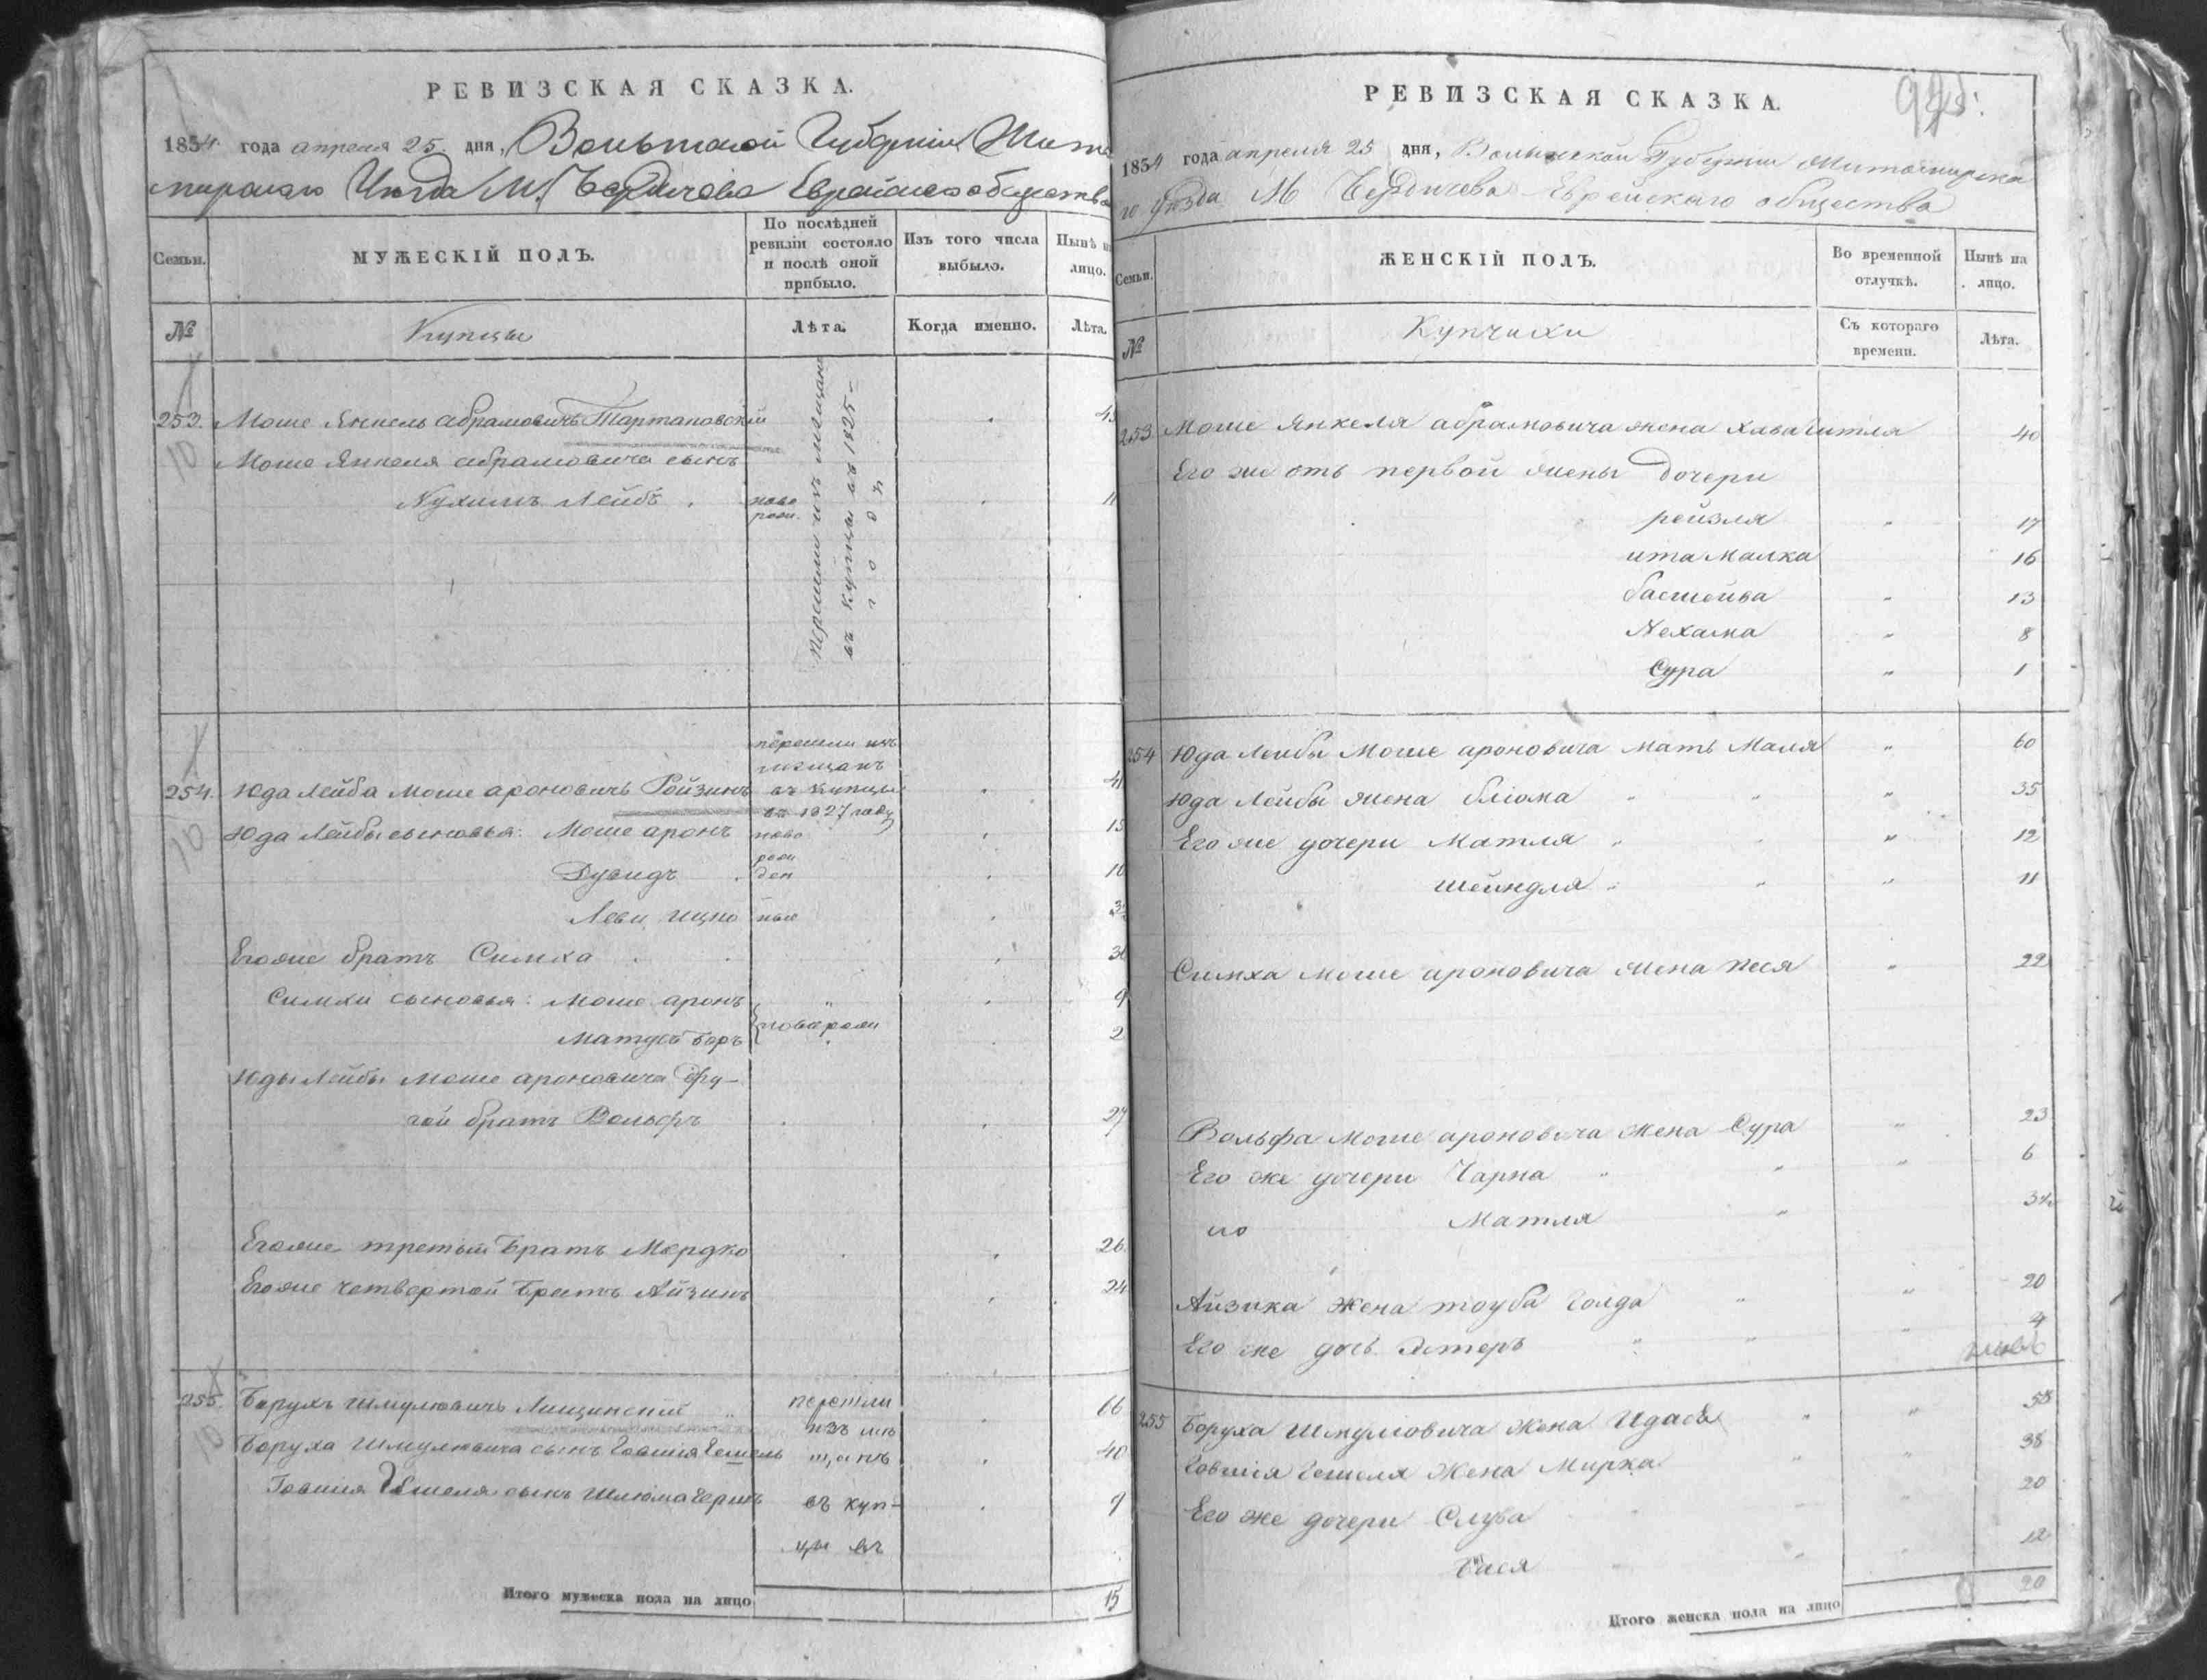 РЕВИЗСКАЯ СКАЗКА.
1834 года апреля 25 дня, Волынской Губерніи Жито
мирскаго Уѣзда М. Бердичева Еврейскаго общества
Семьи.
МУЖЕСКІЙ ПОЛЪ.
По послѣдней ревизіи состояло и послѣ оной прибыло.
Изъ того числа выбыло.
Нынѣ на лицо.
№
Купцы
Лѣта.
Когда именно.
Лѣта.
253. Моше Янкель Абрамовичъ Тартаковскій
Моше Янкеля Абрамовича сынъ
Нухимъ Лейбъ ново рож. 11
Перешли изъ мещанъ
въ купцы въ 1825-
г о д ѣ
254. Юда Лейба Моше Ароновичъ Ройзинъ перешли изъ мещанъ въ купцы въ 1827 году 41
Юда Лейбы сыновья: Моше Аронъ ново 15
Дувидъ рож ден 10
Леви Ицко ные
Его же братъ Симха
Симхи сыновья: Моше Аронъ 9
Матусъ Беръ новорож 2
Юды Лейбы Моше Ароновича дру-
гой братъ Вольфъ 27
Его же третьій Братъ Мордко 26
Его же четвертой Братъ Айзикъ 24
255. Борухъ Шмулювичъ Лищинскій перешли 66
изъ мѣ
Боруха Шмулювича сынъ Говшія Гешель щанъ 40
Говшія Гешеля сынъ Шлюма Гершъ въ куп- 9
цы въ
Итого мужеска пола на лицо 15
РЕВИЗСКАЯ СКАЗКА.
1834 года апреля 25 дня, Волынской Губерніи Житомирска
го Уѣзда М Бердичева Еврейскаго общества
Семьи.
ЖЕНСКІЙ ПОЛЪ.
Во временной отлучкѣ.
Нынѣ на лицо.
№
Купчихи
Съ котораго времени.
Лѣта.
253 Моше Янкеля Абрамовича жена Хава Гитля 40
Его же отъ первой жены дочери
рейзля " 17
ита Малка 16
басшейва " 13
Нехама " 8
Сура " 1
254 Юда Лейбы Моше Ароновича мать Маля " 60
Юда Лейбы жена блюма " " " 35
Его же дочери Матля " " " 12
шейндля " " " 11
Симха Моше Ароновича жена Песя " 22
Вольфа Моше Ароновича жена Сура " 23
Его же дочери Чарна " " " 6
Матля "
Айзика жена тоуба голда " " 20
Его же дочь Эстеръ " " " 4
255 Боруха Шмулювича жена Идася " " 58
Говшія Гешеля жена Мирка " " 38
Его же дочери Слува " 20
Бася " " 12
Итого женска пола на лицо 20